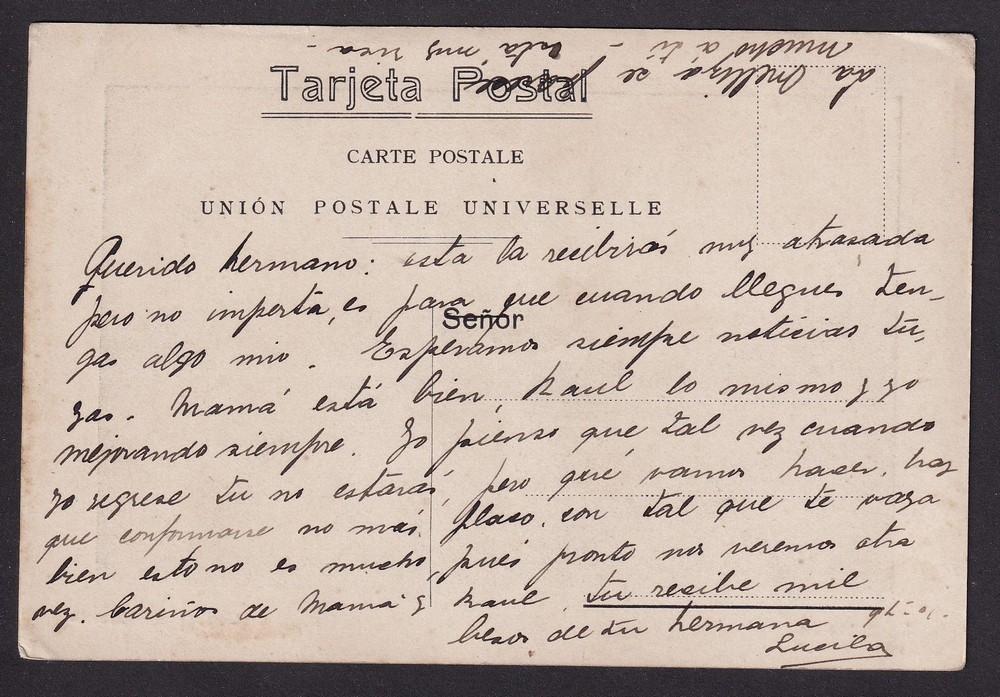 La Melliza se parece
mucho a ti - está muy rica -
Tarjeta Postal
CARTE POSTALE
UNIÓN POSTALE UNIVERSELLE
Señor
Querido hermano: esta la recibirás muy atrasada
pero no importa, es para que cuando llegues ten-
gas algo mio. Esperamos siempre noticias tu-
yas. Mamá está bien, Raul lo mismo y yo
mejorando siempre. Yo pienso que tal vez cuando
yo regrese tu no estarás, pero qué vamos hacer, hay
que conformarse no más. Flaco, con tal que te vaya
bien esto no es mucho, pues pronto nos veremos otra
vez. Cariños de Mamá y Raul. Tu recibe mil
besos de tu hermana
Lucila